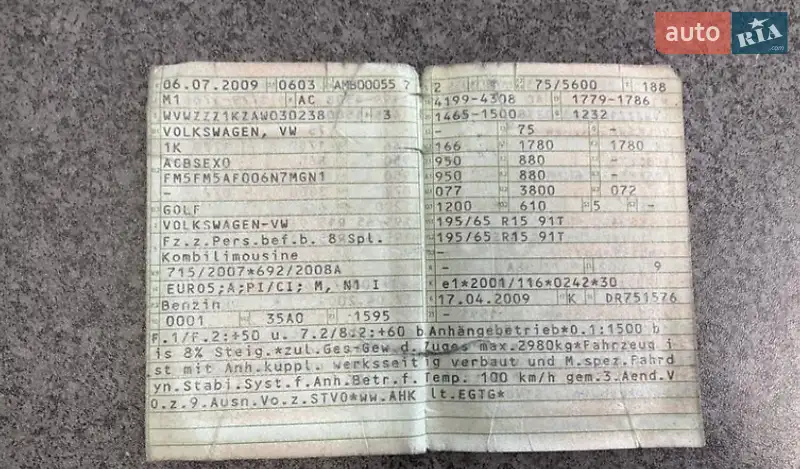 auto RIA.com
06.07.2009 0603 AMB00055 7
M1 AC
WVWZZZ1KZAW030238 3
VOLKSWAGEN, VW
1K
ACBSEX0
FM5FM5AF006N7MGN1
-
GOLF
VOLKSWAGEN-VW
Fz.z.Pers.bef.b. 8 Spl.
Kombilimousine
715/2007*692/2008A
EURO5;A;PI/CI; M, N1 I
Benzin
0001 35A0 1595
2 75/5600 188
4199-4308 1779-1786
1465-1500 1232
- 75 -
166 1780 1780
950 880 -
950 880 -
077 3800 072
1200 610 5 -
195/65 R15 91T
195/65 R15 91T
-
- 9
e1*2001/116*0242*30
17.04.2009 K DR751576
F.1/F.2:+50 u. 7.2/8.2:+60 b.Anhängebetrieb*0.1:1500 b
is 8% Steig.*zul.Ges-Gew.d.Zuges max.2980kg*Fahrzeug i
st mit Anh.kuppl. werksseitig verbaut und M.spez.Fahrd
yn.Stabi.Syst.f.Anh.Betr.f.Temp. 100 km/h gem.3.Aend.V
O.z.9.Ausn.Vo.z.STVO*ww.AHK lt.EGTG*